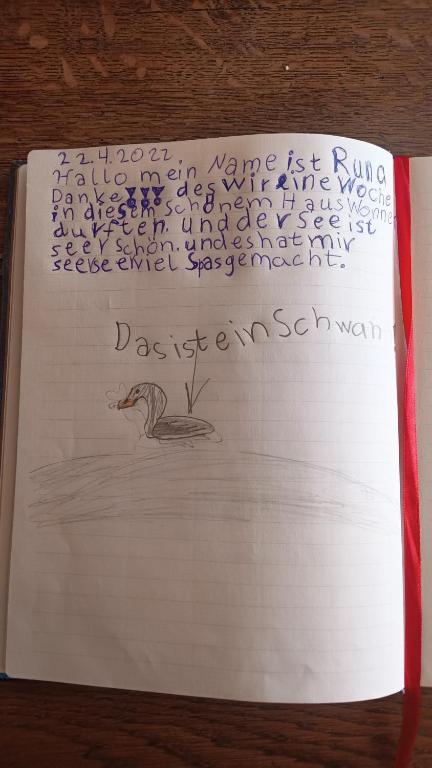 22.4.2022
Hallo mein Name ist Runa
Danke!!! des wir eine Woche
in diesem schönem Haus Wonnen
durften. und der See ist
seer schön. und es hat mir
seerseerviel Spasgemacht.
Das ist ein Schwan